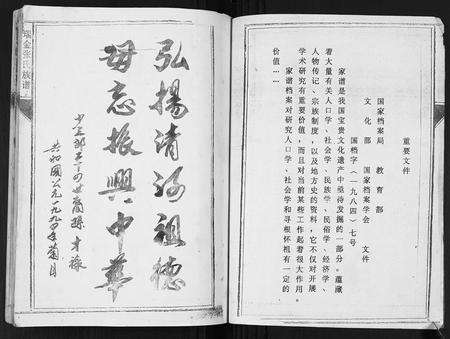 重要文件
国家档案局 教育部
文化部 国家档案学会 文件
国档字(一九八四)七号
家谱是我国宝贵文化遗产中亟待发掘的一部分。蕴藏
着大量有关人口学、社会学、民族学、民俗学、经济学、
人物传记、宗族制度,以及地方史的资料,它不仅对开展
学术研究有重要价值,而且对当前某些工作起着很大作用
家谱档案对研究人口学、社会学和寻根怀祖有一定的
价值……
弘揚清河祖德
毋忘振興中華
共和國公元一九九四年菊月
張氏族譜